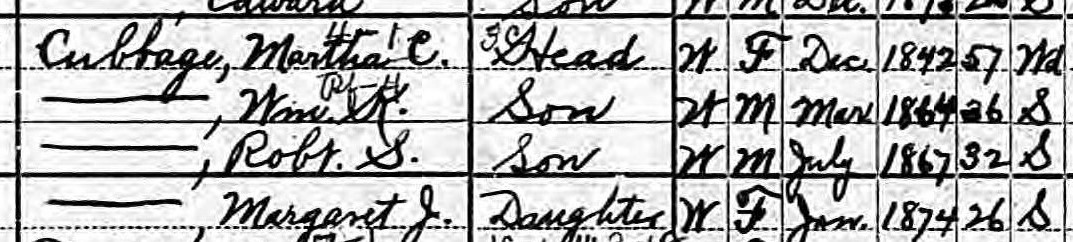 Edward Son W M Dec. S
Cubbage, Martha C. Head W F Dec. 1842 57 Wd
——, Wm. H. Son W M Mar 1864 36 S
——, Robt. S. Son W M July 1867 32 S
——, Margaret J. Daughter W F Jan. 1874 26 S